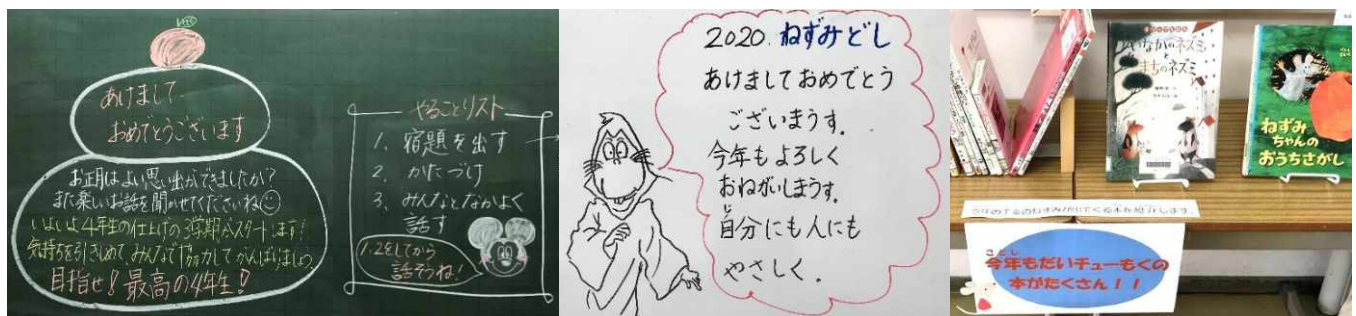 あけまして
おめでとうございます
お正月はよい思い出ができましたか?
また楽しいお話を聞かせてくださいね
いよいよ4年生の仕上げの3学期がスタートします!
気持ちを引きしめて、みんなで協力してがんばりましょう
目指せ!最高の4年生!
やることリスト
1、宿題を出す
2、かたづけ
3、みんなとなかよく
話す
1、2をしてから
話そうね!
2020.ねずみどし
あけましておめでとう
ございまうす。
今年もよろしく
おねがいしまうす。
じ
自分にも人にも
やさしく.
いなかのネズミ
と
まちのネズミ
ねずみ
ちゃんの
おうちさがし
ことし
今年もだいチューもくの
本がたくさん!!